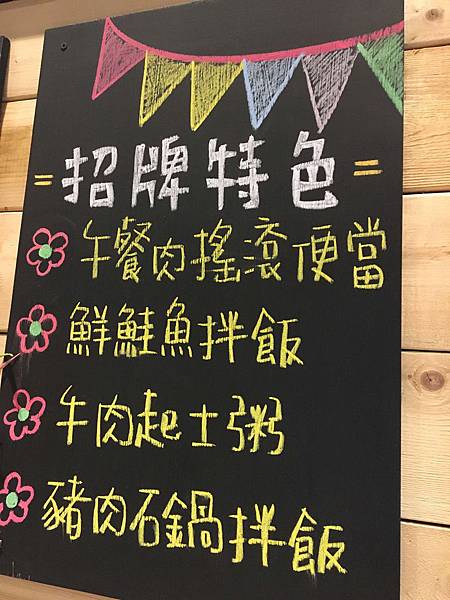 =招牌特色=
午餐肉搖滾便當
鮮鮭魚拌飯
牛肉起士粥
豬肉石鍋拌飯